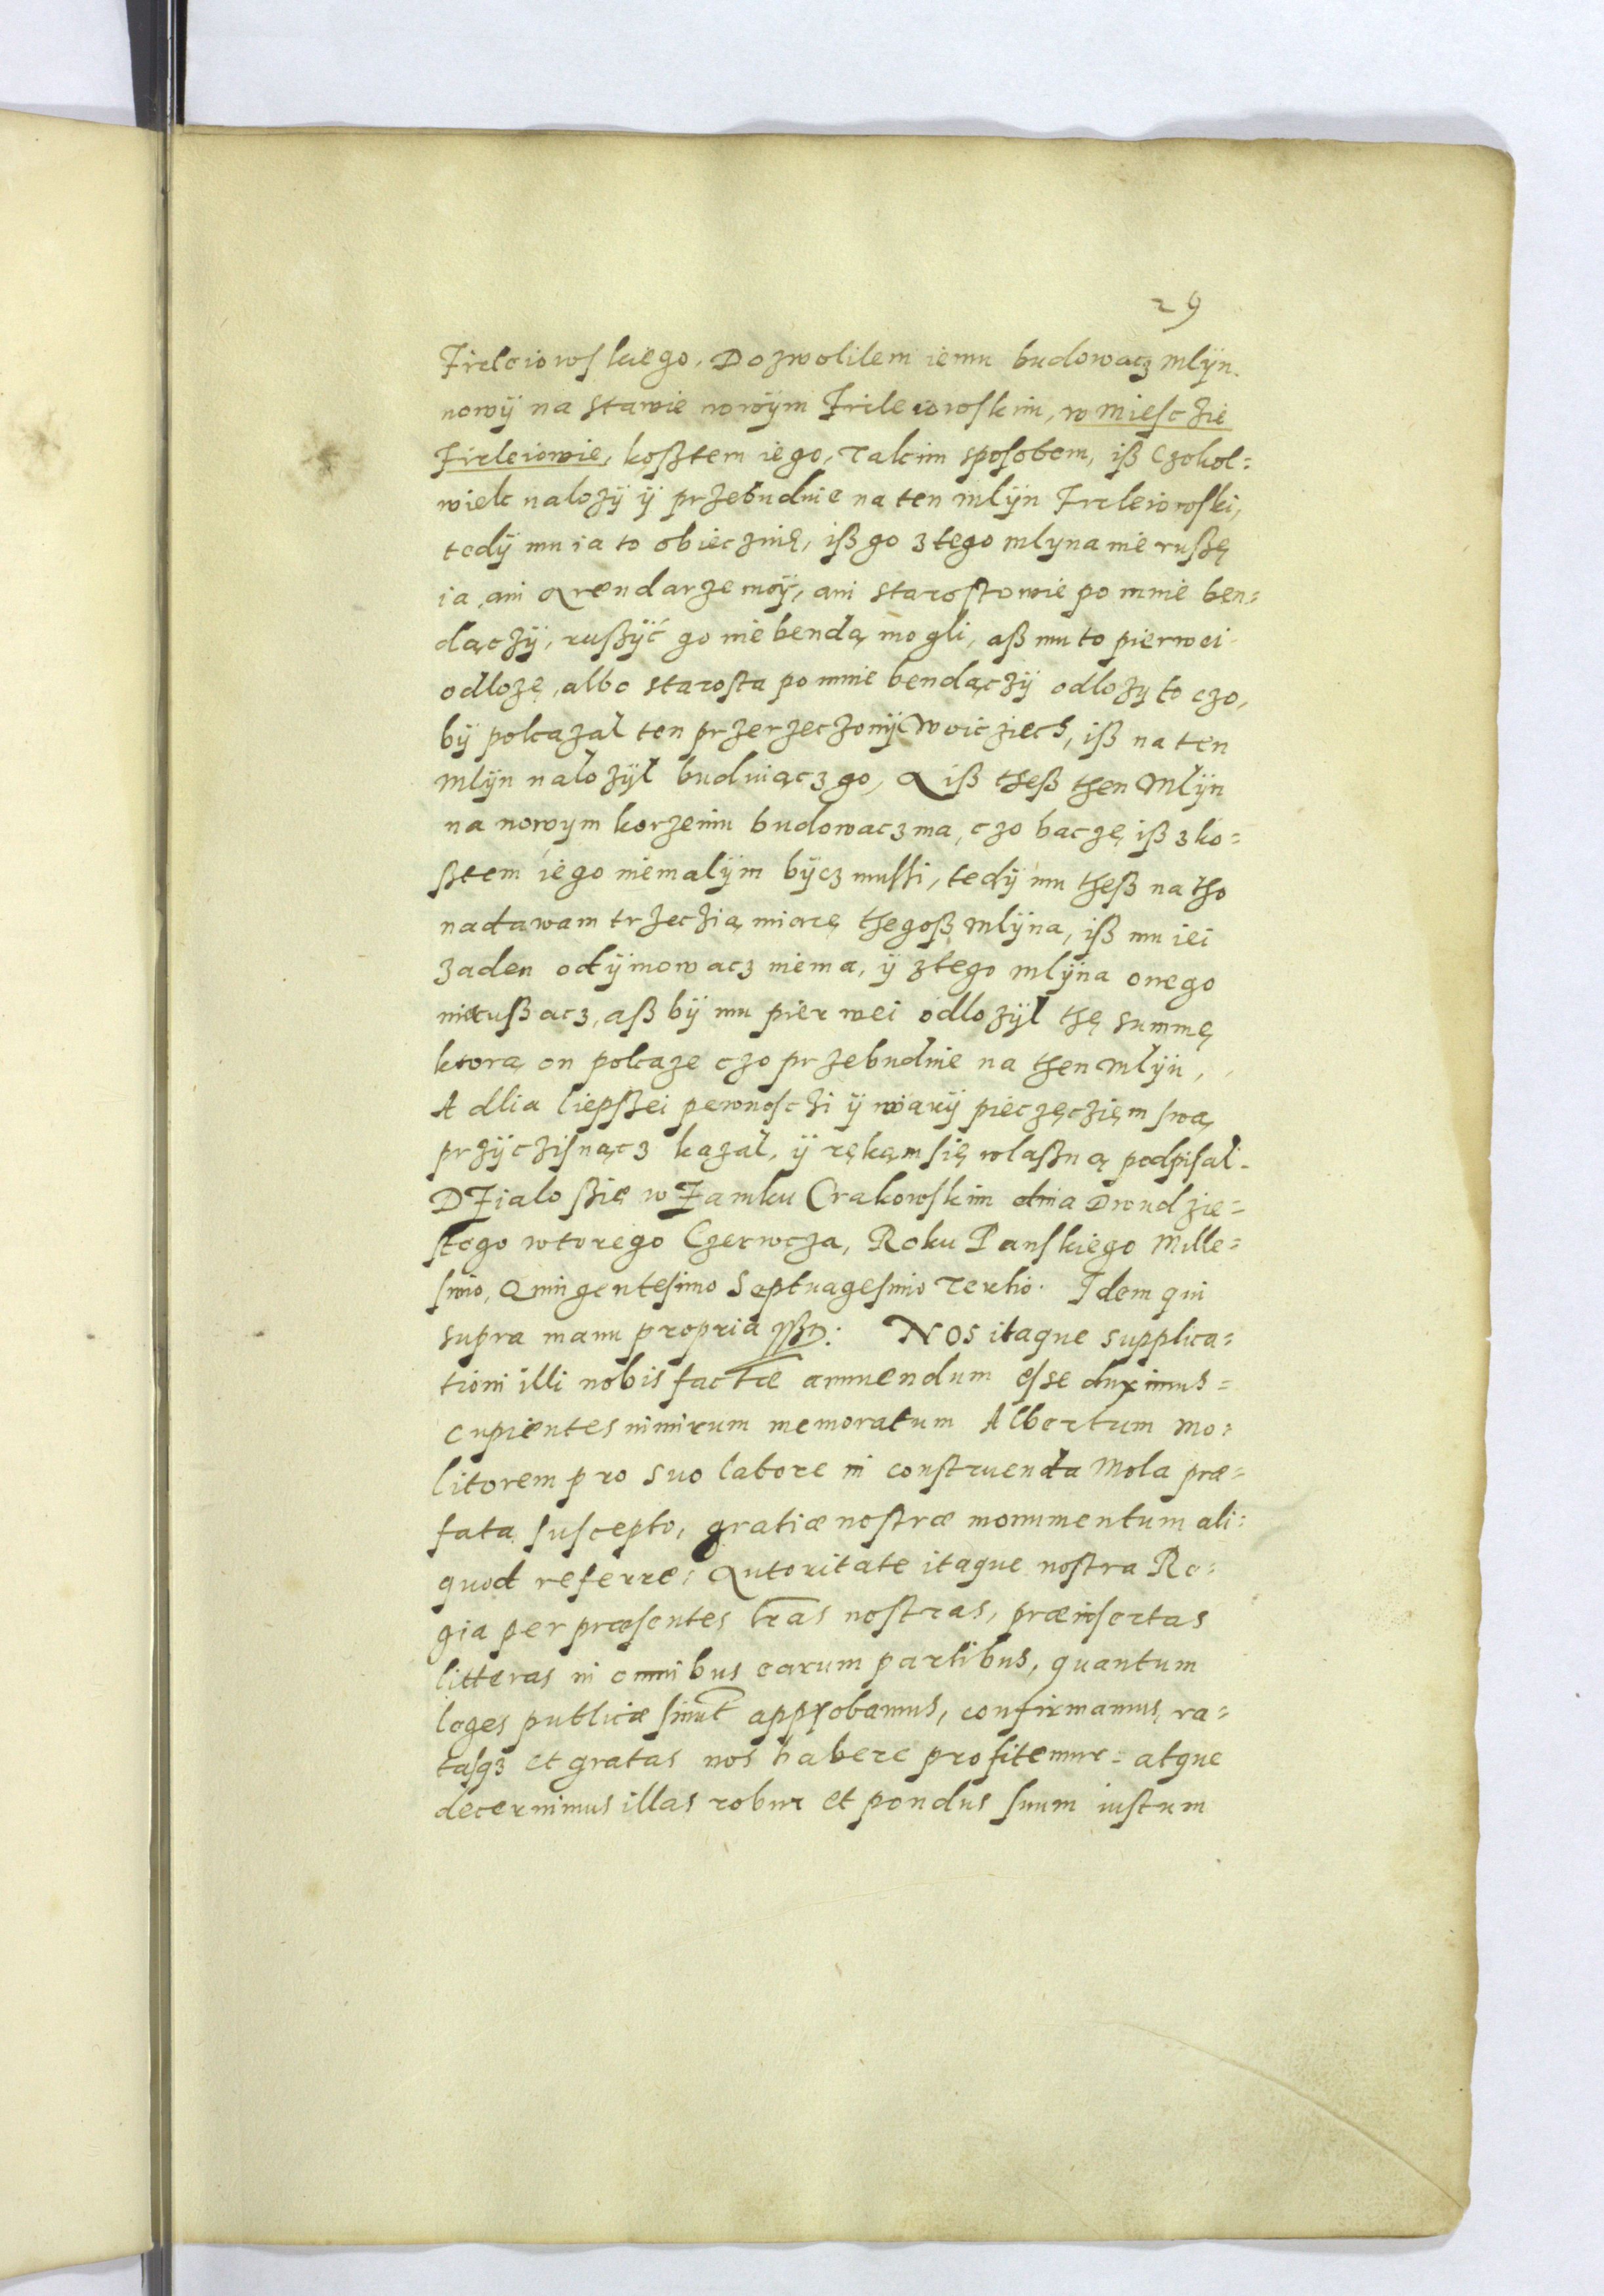 29
Firleiowskiego. Dozwolilem iemu budowacz mlÿn
nowÿ na stawie nowÿm Firleiowskim, w miesczie
Firleiowie, kosztem iego, Takim sposobem, iß Czokol=
wiek nalozÿ ÿ przebuduie na ten mlÿn Firleiowski,
tedÿ mu ia to obieczuię, iß go z tego mlyna nie rußę
ia, ani Arendarze moÿ, ani starostowie po mnie ben=
dączÿ, rußÿć go nie bendą mogli, aß mu to pierwei
odlozę, albo starosta po mnie bendączÿ odlozy to czo,
bÿ pokazal ten przerzeczonÿ Woiciech, iß na ten
Mlÿn nalozÿl buduiącz go, A iß theß then Mlÿn
na nowym korzeniu budowacz ma, czo baczę iß z ko=
ßtem iego niemalÿm bÿcz mussi, tedÿ mu theß na tho
nadawam trzeczią miarę thegoß Mlÿna, iß mu iei
zaden odÿmowacz niema, ÿ z tego mlÿna onego
nierußacz, aß bÿ mu pierwei odlozÿl thę summę
ktorą on pokaze czo przebuduie na then Mlÿn,
A dlia liepßei pewnosczi ÿ wiarÿ pieczęczięm swą
przÿczisnącz kazal, ÿ rękąm się wlaßną podpisal.
DZialo ßię w Zamku Crakowskim dnia Dwudzie=
stego wtorego Czerwcza, Roku Panskiego Mille=
simo, Quingentesimo Septuagesimo Tertio. Idem qui
supra manu propria ßßp: NOS itaque supplica=
tioni illi nobis factæ annuendum esse duximus=
cupientes nimirum memoratum Albertum Mo=
litorem pro suo labore in construenda Mola præ=
fata suscepto, gratiæ nostræ monumentum ali=
quod referre: Autoritate itaque nostra Re=
gia per præsentes lr̃as nostras, præinsertas
litteras in omnibus earum partibus, quantum
leges publicæ sinut approbamus, confirmamus, ra=
tasqꝫ et gratas nos habere profitemur= atque
decernimus illas robur et pondus suum iustum